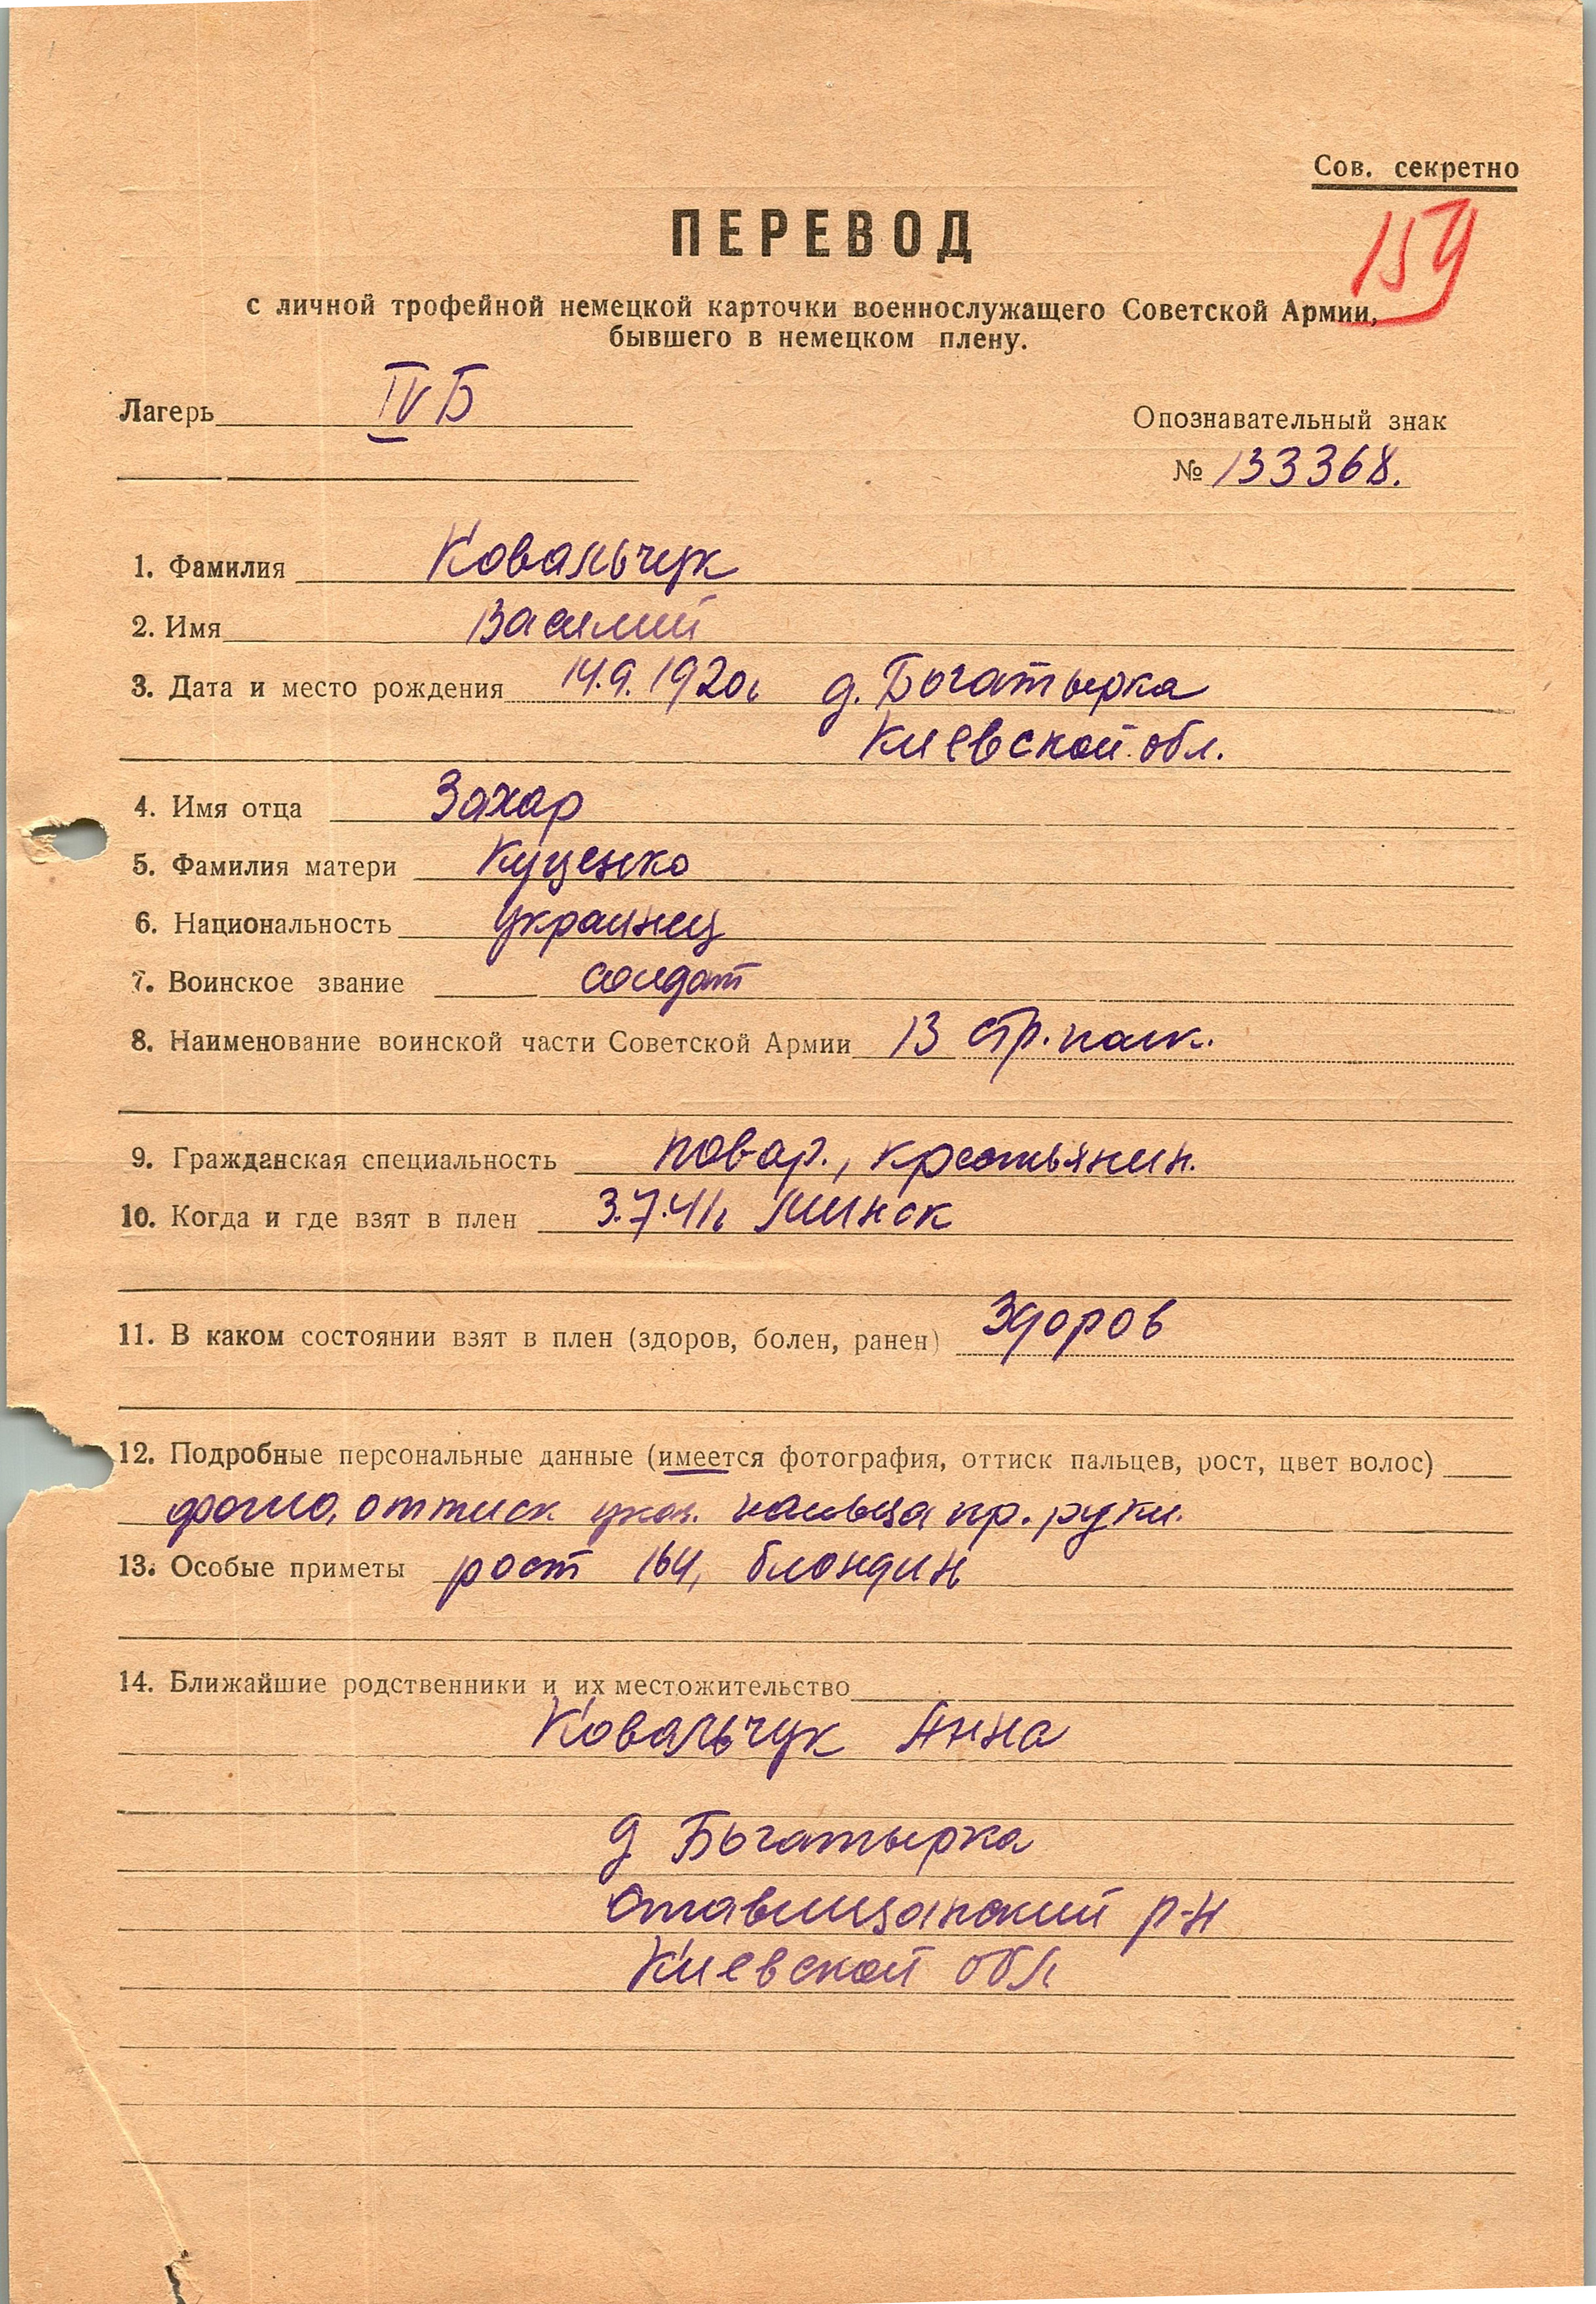 Сов. секретно
159
ПЕРЕВОД
с личной трофейной немецкой карточки военнослужащего Советской Армии,
бывшего в немецком плену.
Лагерь IV Б
Опознавательный знак
№ 133368.
1. Фамилия Ковальчук
2. Имя Василий
3. Дата и место рождения 14.9.1920г д. Богатырка
Киевской обл.
4. Имя отца Захар
5. Фамилия матери Куценко
6. Национальность украинец
7. Воинское звание солдат
8. Наименование воинской части Советской Армии 13 стр. полк.
9. Гражданская специальность повар., крестьянин.
10. Когда и где взят в плен 3.7.41г Минск
11. В каком состоянии взят в плен (здоров, болен, ранен) здоров
12. Подробные персональные данные (имеется фотография, оттиск пальцев, рост, цвет волос)
фото, оттиск указ. пальца пр. руки.
13. Особые приметы рост 164, блондин
14. Ближайшие родственники и их местожительство
Ковальчук Анна
д Богатырка
Ставищанский р-н
Киевской обл